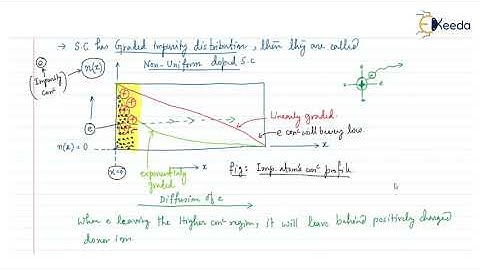 Ekeeda
→ S.C has Graded impurity distribution, then they are called
Non-Uniform doped S.C
n(x)
(Impurity
Conc)
e
n(x)=0
x=0
Linearly graded.
e conc will be very low.
exponentially
graded
x
x
Fig: Imp. atoms conc profile
Diffusion of e
when e leaving the Higher conc region, it will leave behind positively charged
donor ion